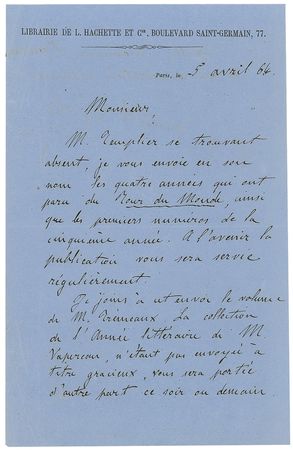 LIBRAIRIE DE L. HACHETTE ET Cie, BOULEVARD SAINT-GERMAIN, 77.
Paris, le 5 avril 64.
Monsieur,
M. Templier se trouvant
absent, je vous envoie en son
nom les quatre années qui ont
paru du Tour du Monde, ainsi
que les premiers numéros de la
cinquième année. A l'avenir la
publication vous sera servie
régulièrement.
Je joins à cet envoi le volume
de M. Trémaux. La collection
de l'Année littéraire de M
Vapereau, n'étant pas envoyée à
titre gracieux, vous sera portée
d'autre part ce soir ou demain